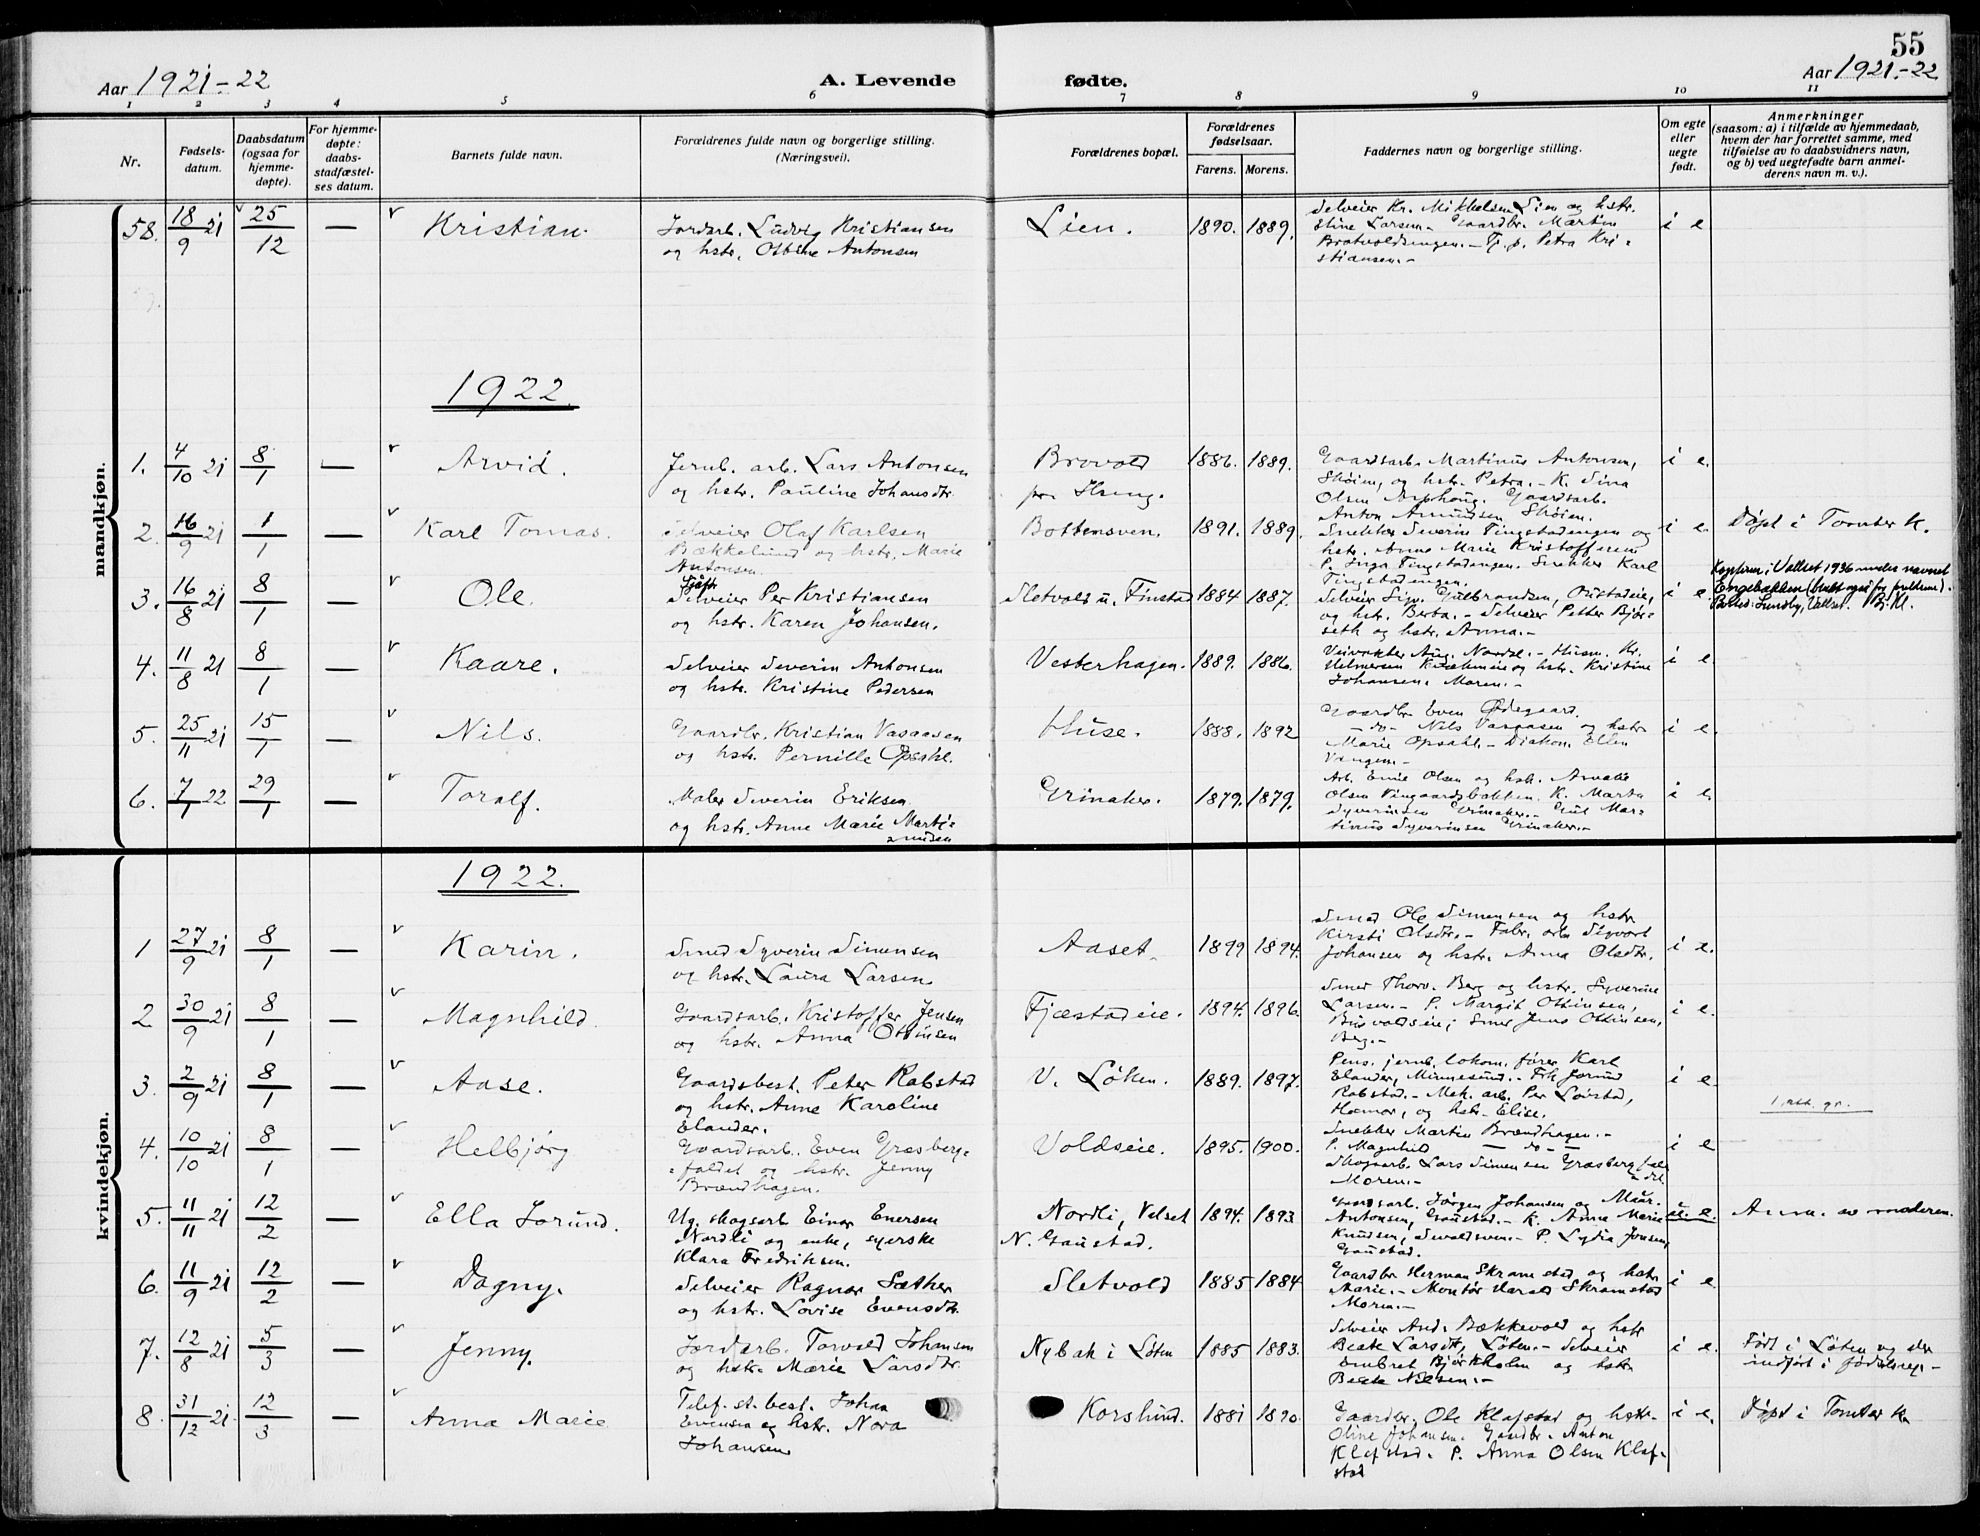 55
Aar 1921-22
A. Levende
fødte.
Aar 1921.-22
1 2 3 4 5 6 7 8 9 10 11
Nr.
Fødsels-
datum.
Daabsdatum
(ogsaa for
hjemme-
døpte).
For hjemme-
døpte:
daabs-
stadfæstel-
ses datum.
Barnets fulde navn.
Forældrenes fulde navn og borgerlige stilling.
(Næringsvei).
Forældrenes bopæl.
Forældrenes
fødselsaar.
Farens. Morens.
Faddernes navn og borgerlige stilling.
Om egte
eller
uegte
født.
Anmerkninger
(saasom: a) i tilfælde av hjemmedaab,
hvem der har forrettet samme, med
tilføielse av to daabsvidners navn,
og b) ved uegtefødte barn anmel-
derens navn m. v.).
mandkjøn.
58. 18/9 21 25/12 — Kristian.
Jordarb. Ludvig Kristiansen
og hstr. Otbine Antonsen
Lien. 1890. 1889.
Selveier Kr. Mikkelsen Lien og hstr.
Stine Larsen. - Gaardbr. Martin
Bratvoldsengen. - Tj. p. Petra Kri-
stiansen. -
i e.
1922.
1. 4/10 21 8/1 — Arvid.
Jernb. arb. Lars Antonsen
og hstr. Pauline Johansdtr.
Brovold
pr. Ilseng.
1886. 1889.
Gaardsarb. Martinus Antonsen,
Sköien, og hstr. Petra. - K. Sina
Olsen Asphoug. Gaardsarb.
Anton Amundsen, Sköien.
i e.
2. 16/9 21 1/1 — Karl Tomas.
Selveier Olaf Karlsen
Bækkelund og hstr. Marie
Antonsen.
Bottensven. 1891. 1889.
Snekker Severin Tingstadengen og
hstr. Anne Marie Kristoffersen
P. Inga Tingstadengen. Snekker Karl
Tingstadengen.
i e. Døpt i Tomter K.
3. 16/8 21 8/1 — Ole.
Selveier Per Kristiansen
og hstr. Karen Johansen.
Sletvold u. Finstad 1884 1887.
Selveier Sig. Gulbrandsen, Oustadeie,
og hstr. Berta. - Selveier Petter Bjør-
seth og hstr. Anna. -
i e.
Konfirm. i Vallset 1936 under navnet
Engebakken
Bosted: Lundby, Vallset. Bj. Kl.
4. 11/8 21 8/1 — Kaare.
Selveier Severin Antonsen
og hstr. Kristine Pedersen
Vesterhagen. 1889. 1886.
Veivokter Aug. Nordse. - Husm. Kr.
Helmersen og hstr. Kristine
Johansen. Moren. -
i e.
5. 25/11 21 15/1 — Nils.
Gaardbr. Kristian Vasaasen
og hstr. Pernille Opsahl.
Huse. 1888. 1892
Gaardbr. Even Ødegaard.
- do - Nils Vasaasen og hstr
Marie Opsahl. - Diakon. Ellen
Vangen. -
i e.
6. 7/1 22 29/1 — Toralf.
Maler Severin Eriksen
og hstr. Anne Marie Marti-
nussen
Grinaker. 1879. 1879.
Arb. Emil Olsen og hstr. Amalie
Olsen Vingaardsbakken. K. Marta
Syverinsen Grinaker. - Gut Mar-
tinus Syverinsen Grinaker. -
i e.
kvindekjøn.
1922.
1 27/9 21 8/1 — Karin.
Smed Syverin Simensen
og hstr. Laura Larsen.
Aaset. 1899 1894.
Smed Ole Simensen og hstr
Kirsti Olsdtr. - Fabr. arb Sigvart
Johansen og hstr. Anna Olsdtr.
i e.
2 30/9 21 8/1 — Magnhild.
Gaardsarb. Kristoffer Jensen
og hstr. Anna Ottinsen
Fjæstadeie. 1894. 1896.
Smed Thorv. Berg og hstr. Syverine
Larsen. - P. Margit Ottinsen,
Smed Jens Ottinsen,
Berg. -
i e.
3. 2/9 21 8/1 — Aase.
Gaardsbest. Peter Rabstad
og hstr. Anne Karoline
Elander.
V. Løken. 1889. 1897.
Pens. jernb. lokom. fører Karl
Elander, Minnesund. - Frk Jorund
Rabstad. - Mek. arb. Per Lövstad,
Hamar, og hstr. Elise.
i e.
4. 10/10 21 8/1 — Helbjørg
Gaardsarb. Even Græsberg-
faldet og hstr. Jenny
Brændhagen.
Voldseie. 1895. 1900.
Snekker Martin Brændhagen. -
P. Magnhild - do - -
Skogsarb. Lars Simensen Græsbergfal-
det
Moren. -
i e
5. 11/11 21 12/2 — Ella Jorund.
Ug. skogsarb Einar Enersen
Nordli og enke, syerske
Klara Fredriksen.
Nordli, Valset
N. Gaustad.
1894. 1893
Gaardsarb. Jørgen Johansen og
Antonsen, Gaustad. - K. Anne Marie
Knudsen, Sevaldsven. - P. Lydia Jensen,
Gaustad.
u. e. Anm. av moderen.
6. 11/9 21 12/2 — Dagny.
Selveier Ragnar Sæther
og hstr. Lovise Evensdtr.
Sletvold 1885 1884
Gaardbr Herman Skramstad og hstr.
Marie. - Montør Harald Skramstad
Moren. -
i e.
7. 12/8 21 5/3 — Jenny.
Jordarb. Torvald Johansen
og hstr. Marie Larsdtr.
Nybak i Løten 1885 1883.
Selveier And. Bækkevold og hstr
Beate Larsdtr, Løten. - Selveier
Embret Bjørkholm og hstr
Beate Nilsen. -
i e. Født i Løten og der
indført i fødselsreg. -
8. 31/12 21 12/3 — Anna Marie
Telef. st. best. Johan
Evensen og hstr. Nora
Johansen
Korslund. 1881 1890.
Gaardbr. Ole Klafstad og hstr.
Oline Johansen. Gaardbr. Anton
Klafstad. P. Anna Olsen Klaf-
stad
i e. Døpt i Tomter K.